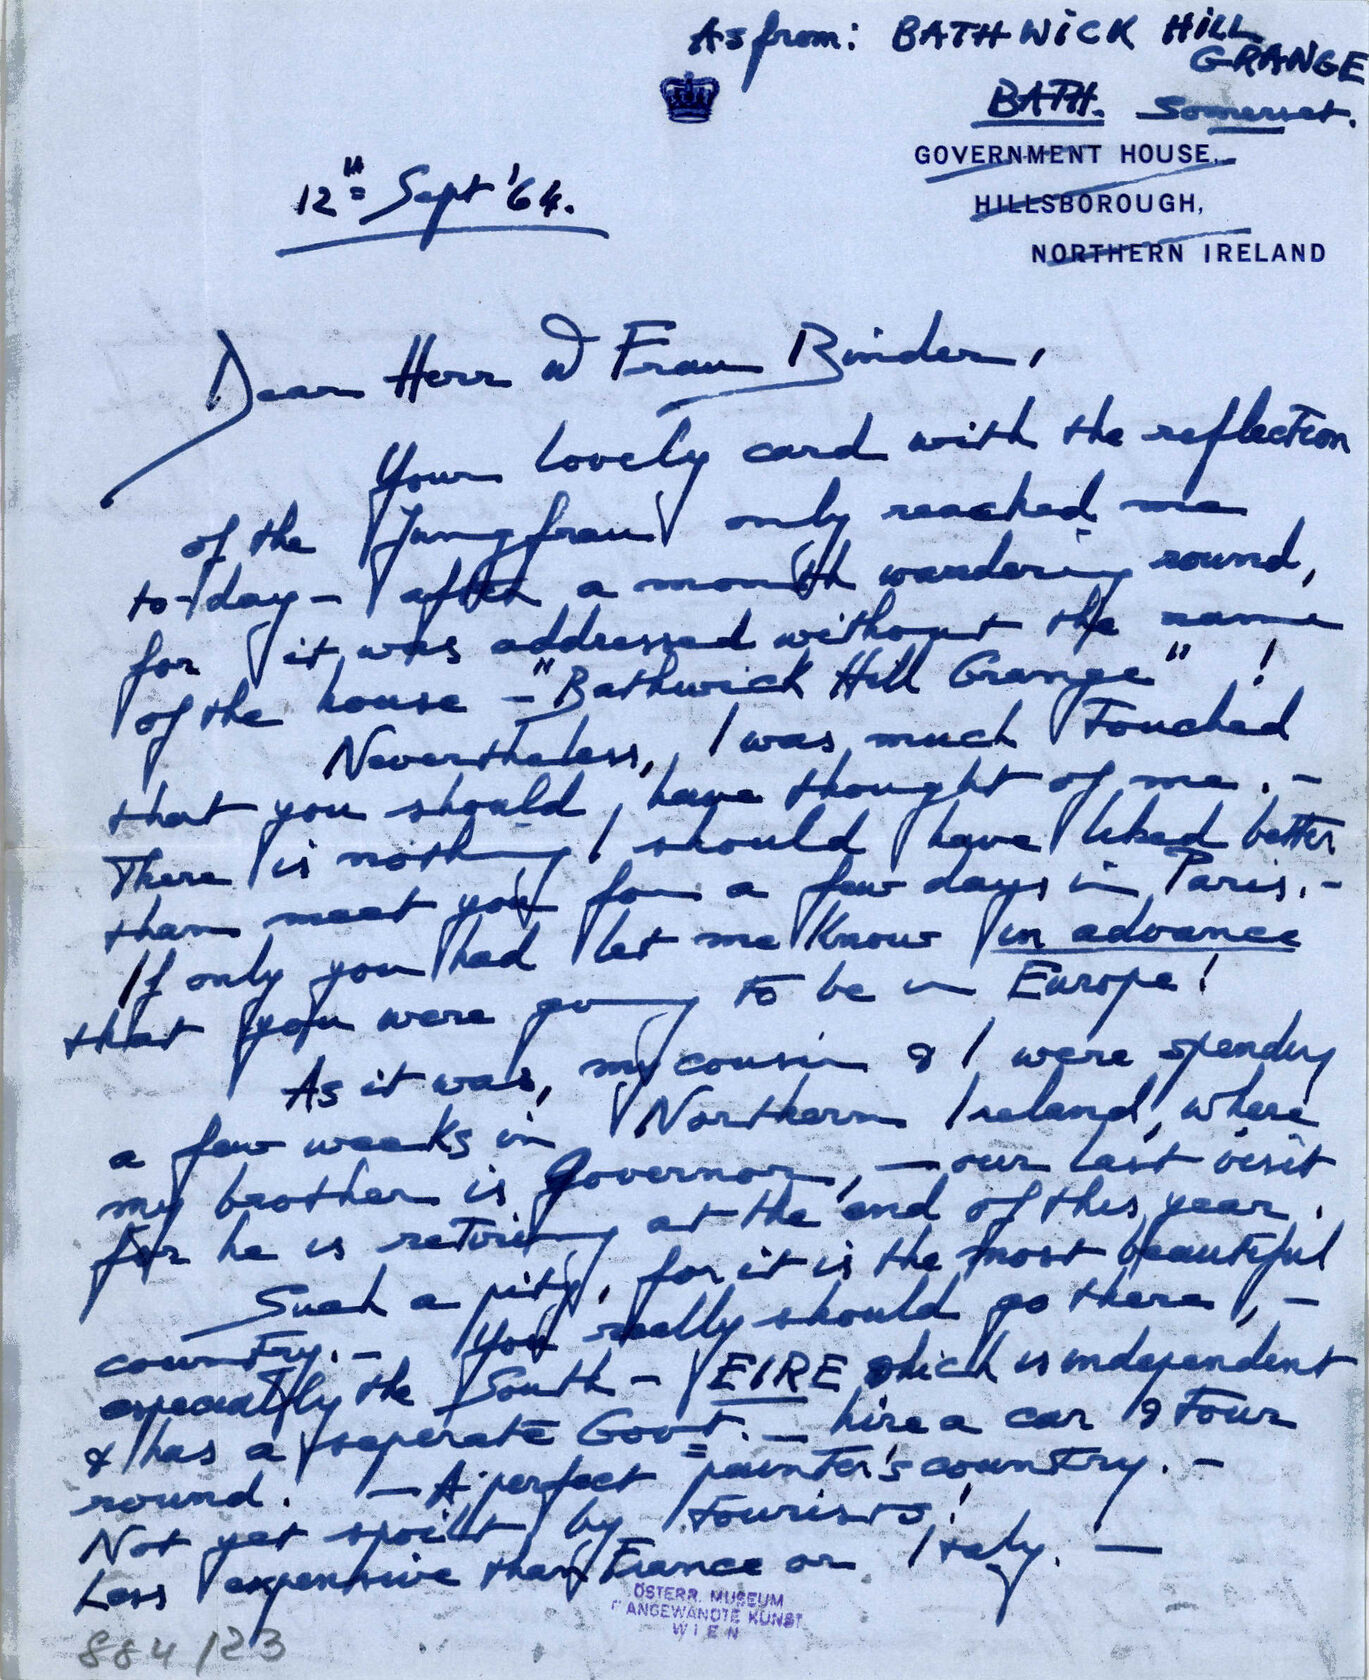 As from: BATHWICK HILL
GRANGE
BATH. Somerset.
GOVERNMENT HOUSE,
HILLSBOROUGH,
NORTHERN IRELAND
12th Sept '64.
Dear Herr & Frau Binder,
Your lovely card with the reflection
of the Jungfrau only reached me
to-day - after a month wandering round,
for it was addressed without the name
of the house - "Bathwick Hill Grange" !
Nevertheless, I was much touched
that you should have thought of me. -
There is nothing I should have liked better
than meet you for a few days in Paris. -
If only you had let me know in advance
that you were going to be in Europe!
As it was, my cousin & I were spending
a few weeks in Northern Ireland, where
my brother is Governor, - our last visit
for he is retiring at the end of this year.
Such a pity, for it is the most beautiful
country. - You really should go there, -
especially the South - EIRE which is independent
& has a seperate Govt. - hire a car & tour
round. - A perfect painter's country. -
Not yet spoilt by tourists!
Less expensive than France or Italy. -
ÖSTERR. MUSEUM
F ANGEWANDTE KUNST
WIEN
884/23